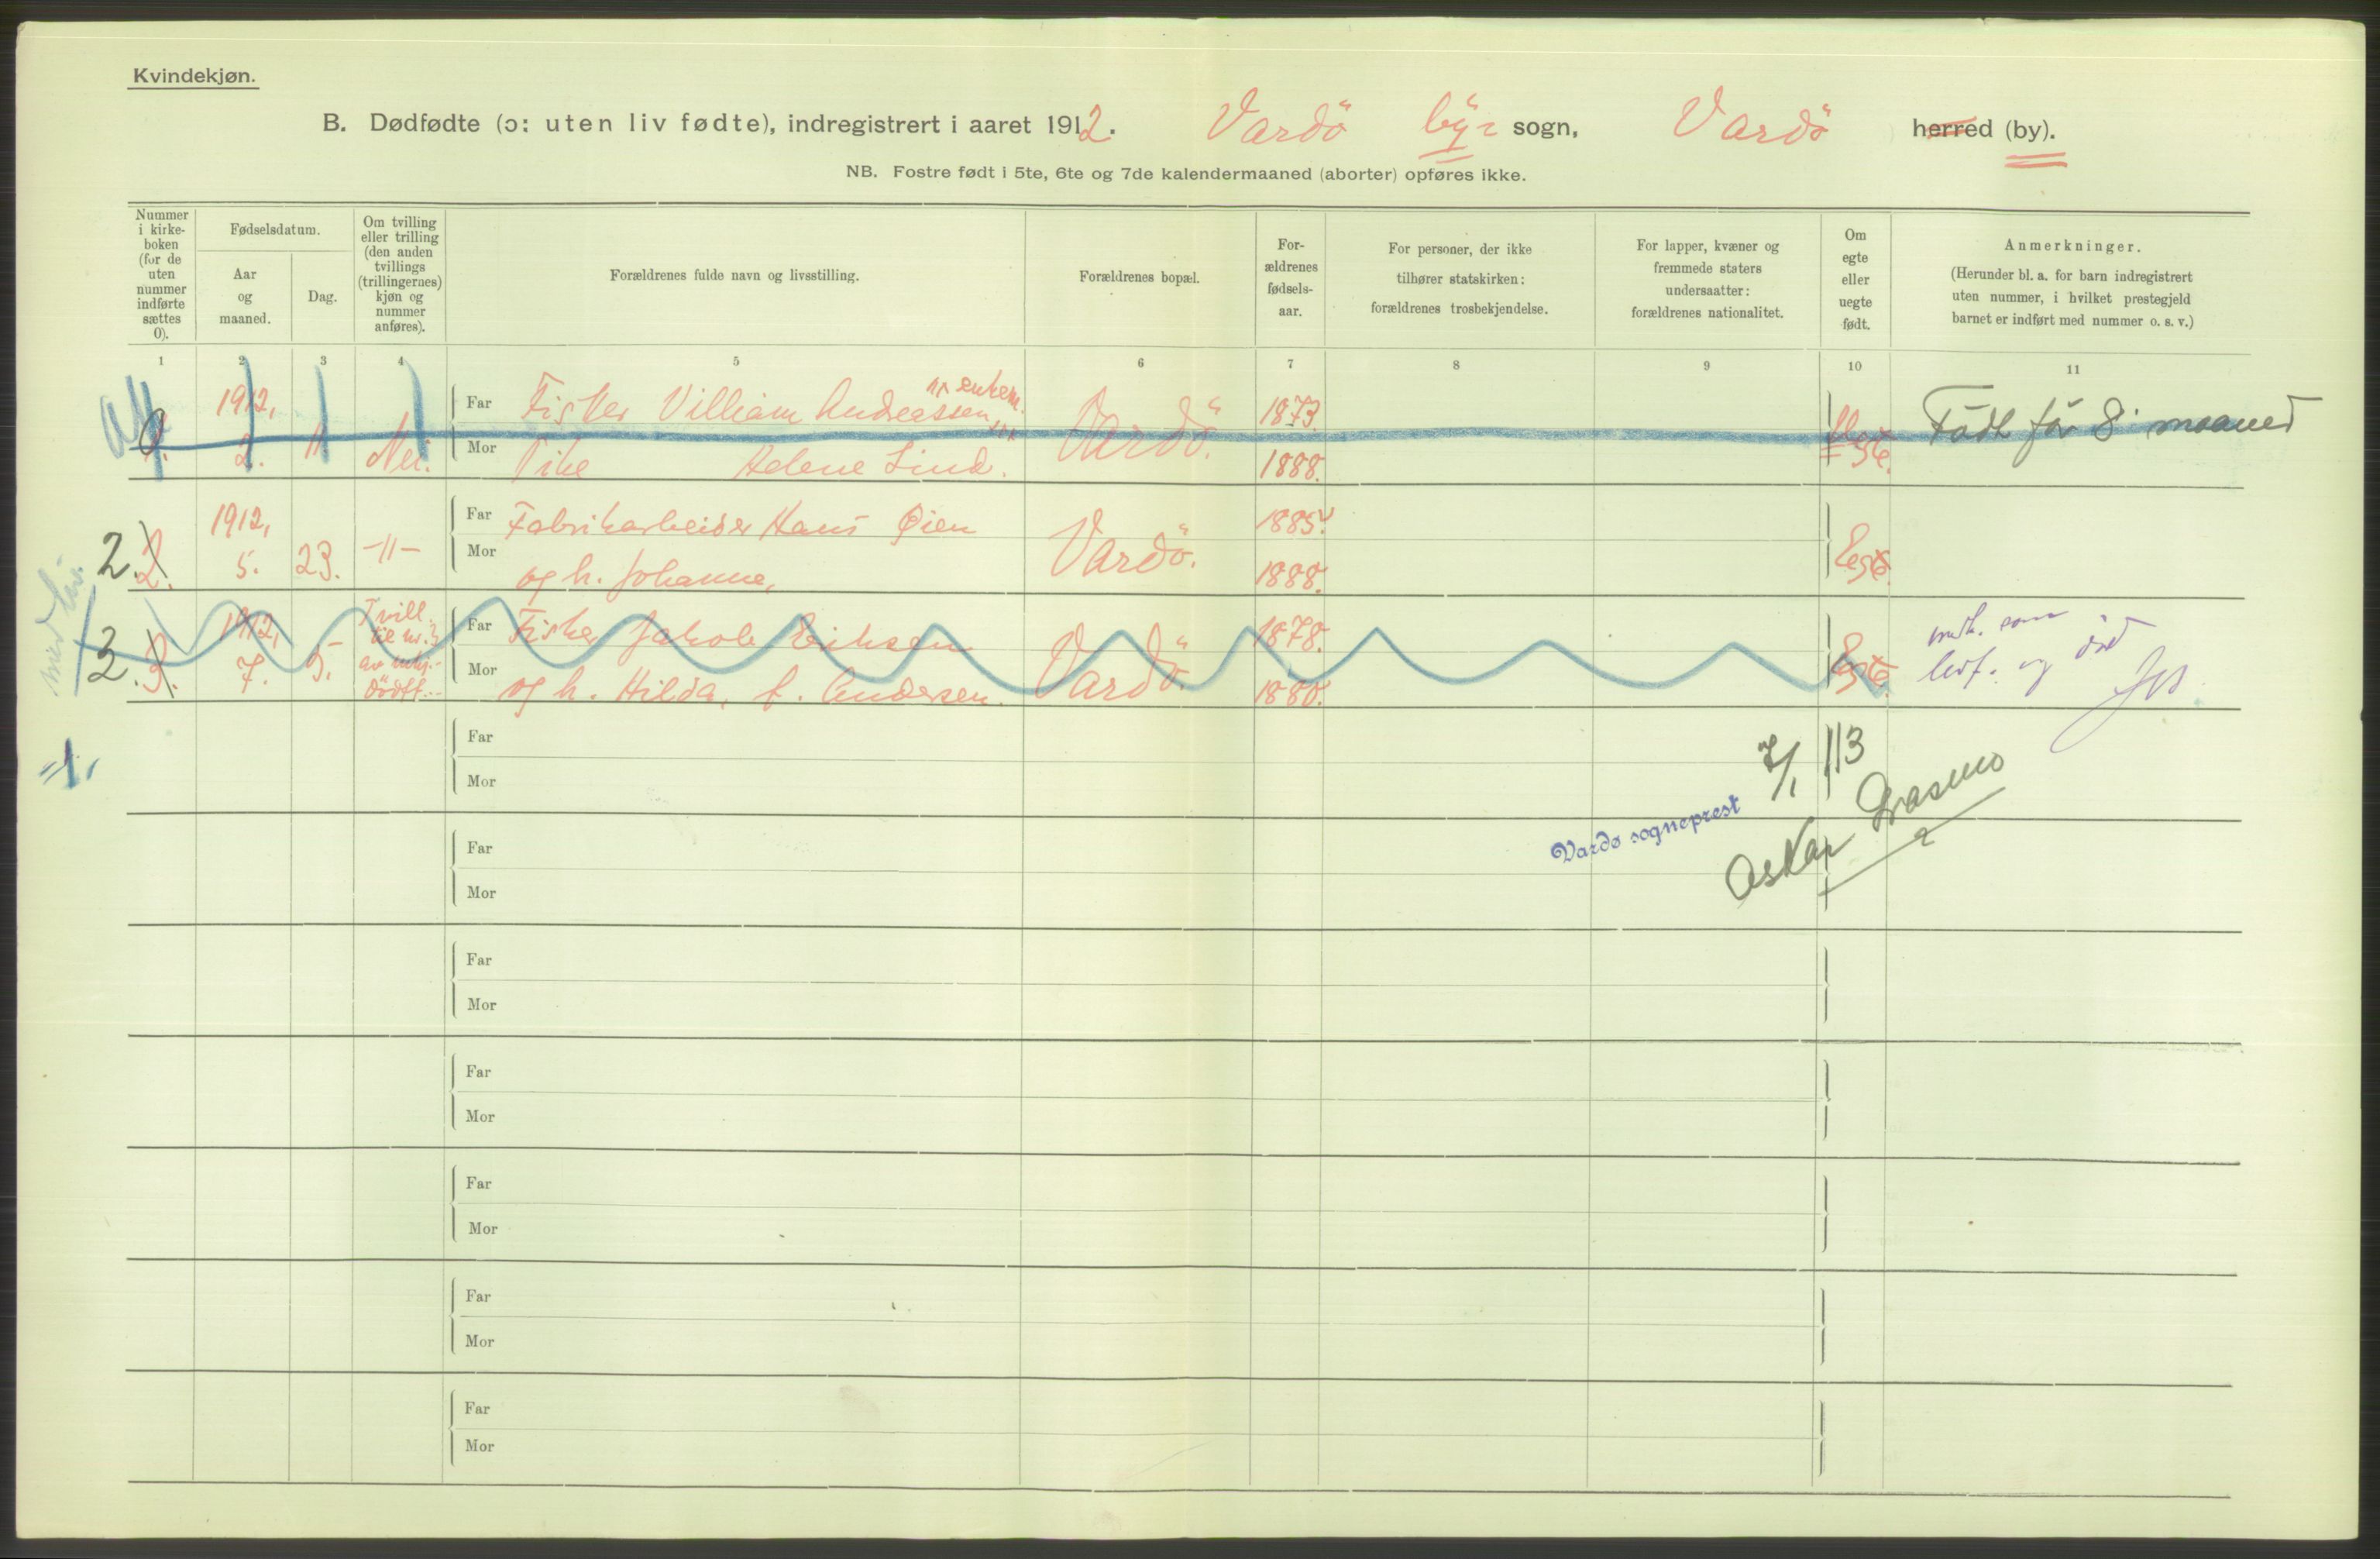 Kvindekjøn.
B. Dødfødte (ɔ: uten liv fødte), indregistrert i aaret 1912. Vardö by- sogn, Vardö herred (by).
NB. Fostre født i 5te, 6te og 7de kalendermaaned (aborter) opføres ikke.
Nummer
i kirke-
boken
(for de
uten
nummer
indførte
sættes
0).
Fødselsdatum.
Aar
og
maaned.
Dag.
Om tvilling
eller trilling
(den anden
tvillings
(trillingernes)
kjøn og
nummer
anføres).
Forældrenes fulde navn og livsstilling.
Forældrenes bopæl.
For-
ældrenes
fødsels-
aar.
For personer, der ikke
tilhører statskirken:
forældrenes trosbekjendelse.
For lapper, kvæner og
fremmede staters
undersaatter:
forældrenes nationalitet.
Om
egte
eller
uegte
født.
Anmerkninger.
(Herunder bl. a. for barn indregistrert
uten nummer, i hvilket prestegjeld
barnet er indført med nummer o. s. v.)
1 2 3 4 5 6 7 8 9 10 11
1912, Far Fisker Villiam Andreassen, enkem. 1873.
2. 11 Nei. Mor Pike Helene Lind. Vardö. 1888. Uegte. Födt før 8. maaned
1912, Far Fabrikarbeider Hans Øien 1885.
2. 2. 5. 23. -"- Mor og h. Johanne, Vardö. 1888. Egte.
med liv.
1912, Tvill. til nr. Far Fisker Jakob Eriksen 1878.
3. 3. 7. 5. dödf. Mor og h. Hilda, f. Andersen. Vardö. 1880. Egte. som
levf. og död
=1.
Far
Mor
7/1 13
Vardø sogneprest
Oskar
Far
Mor
Far
Mor
Far
Mor
Far
Mor
Far
Mor
Far
Mor